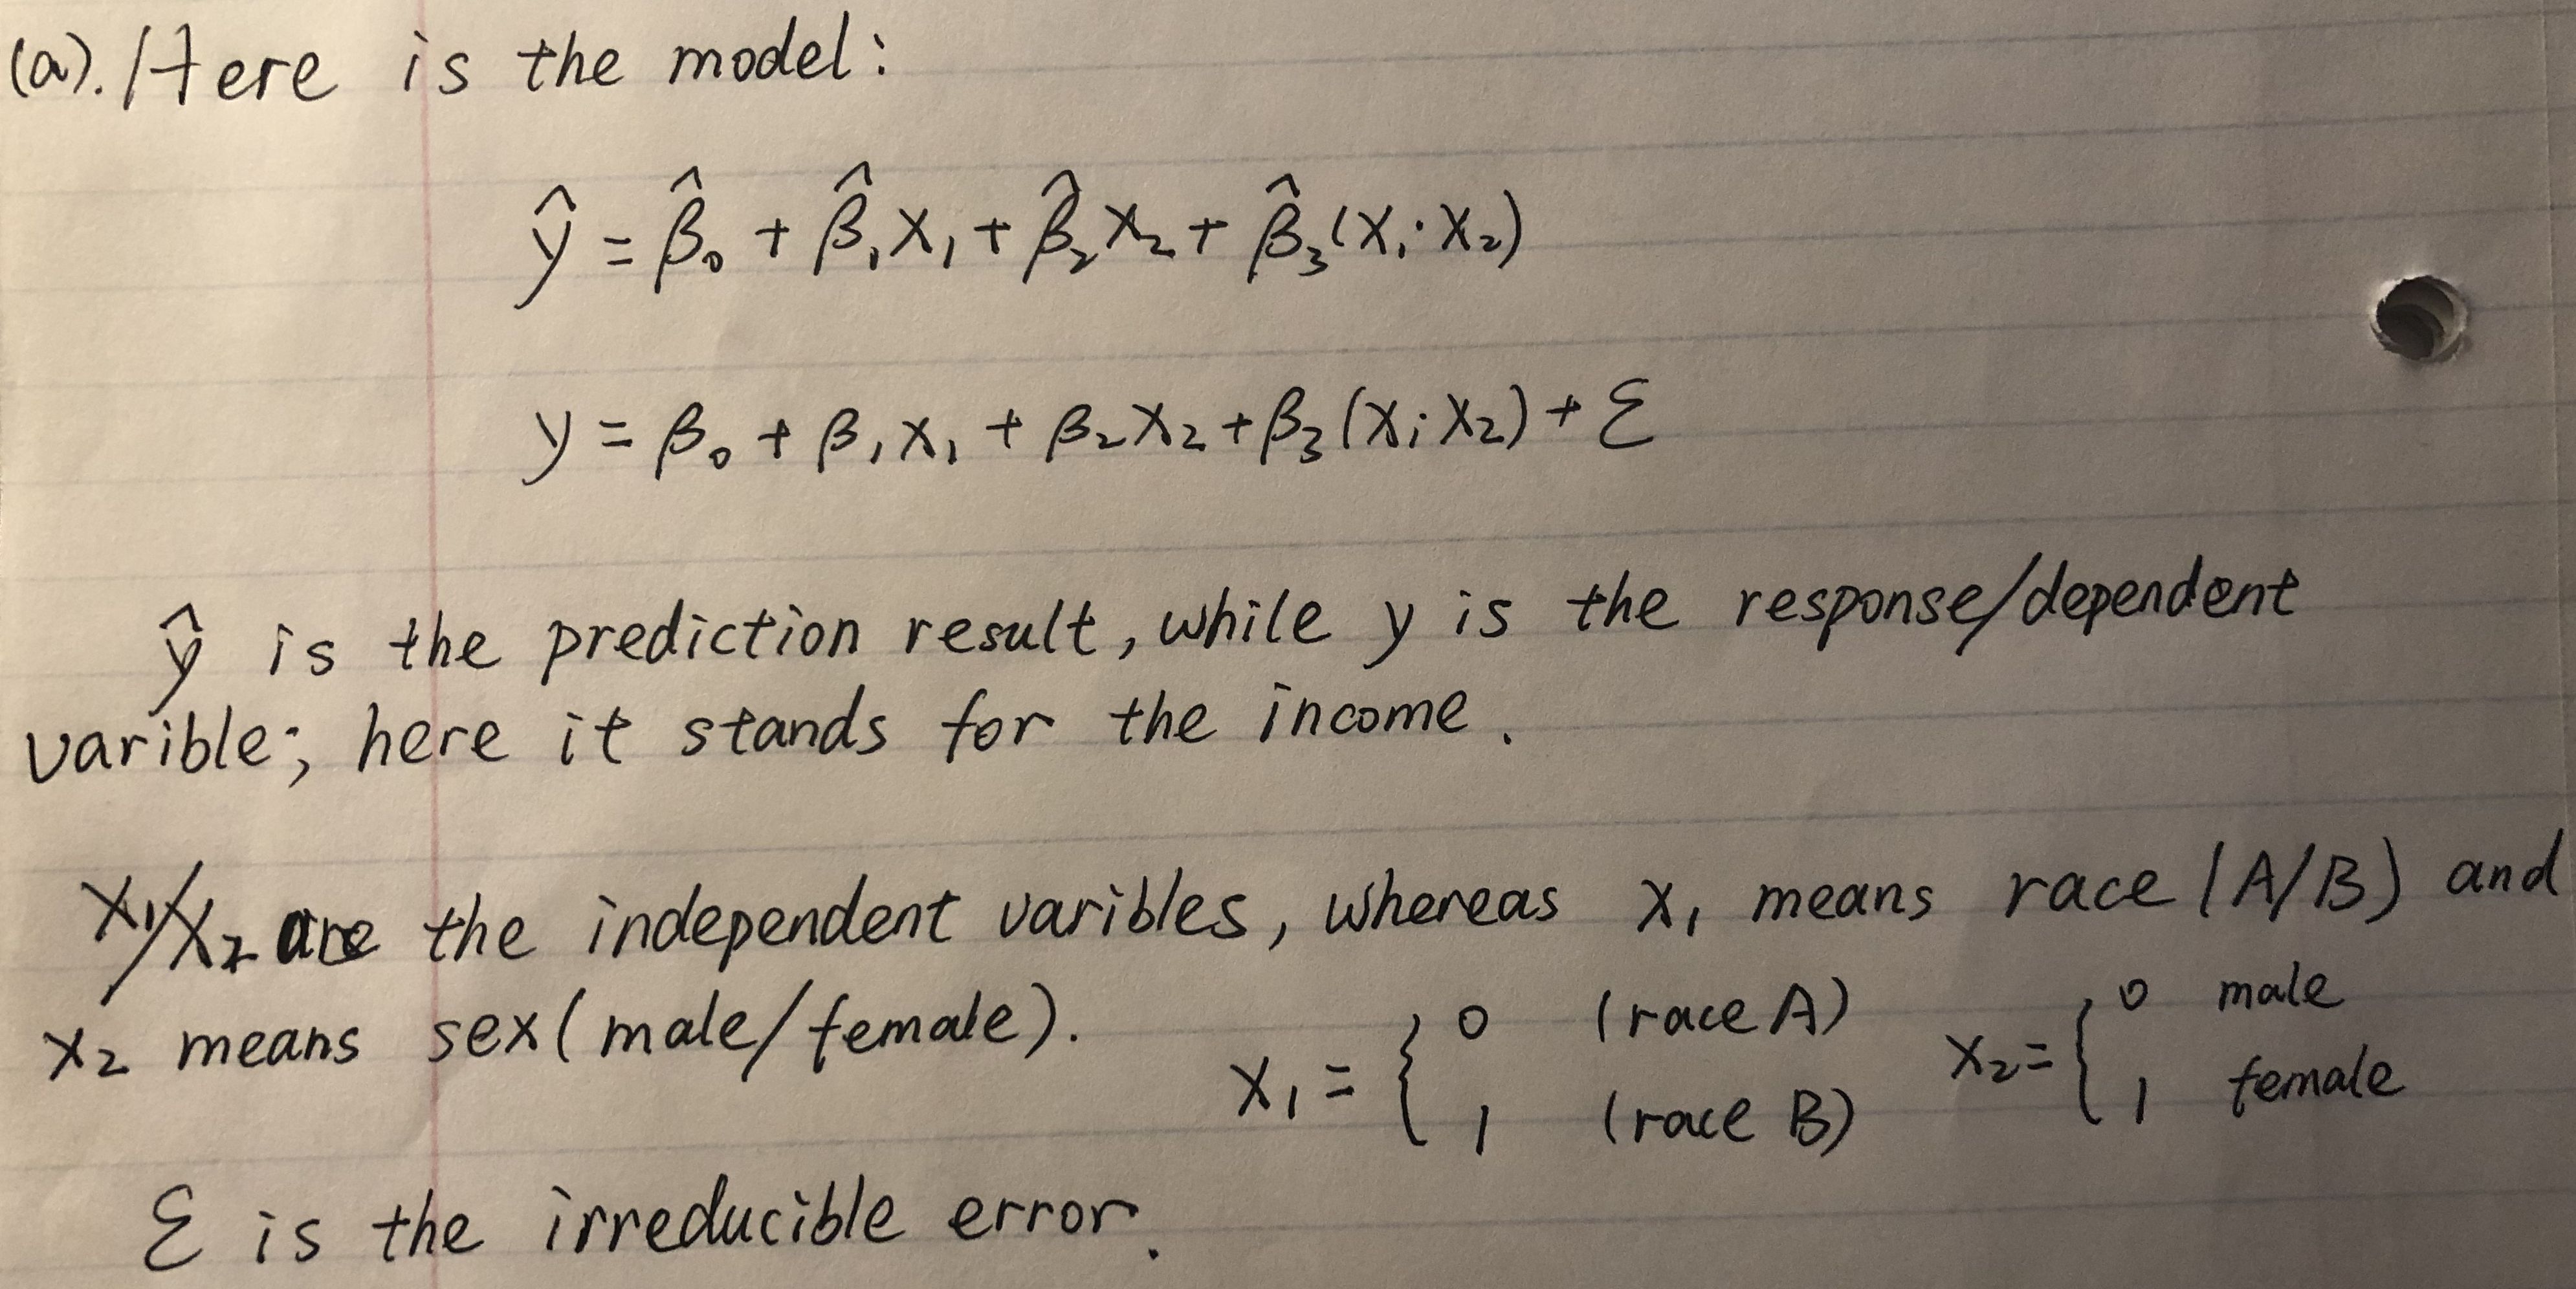 (a). Here is the model:
ŷ = β̂₀ + β̂₁x₁ + β̂₂x₂ + β̂₃(x₁·x₂)
y = β₀ + β₁x₁ + β₂x₂ + β₃(x₁·x₂) + ε
ŷ is the prediction result, while y is the response/dependent
varible; here it stands for the income.
x₁/x₂ are the independent varibles, whereas x₁ means race (A/B) and
x₂ means sex (male/female). x₁ = { 0 (race A) x₂ = { 0 male
1 (race B) 1 female
ε is the irreducible error.